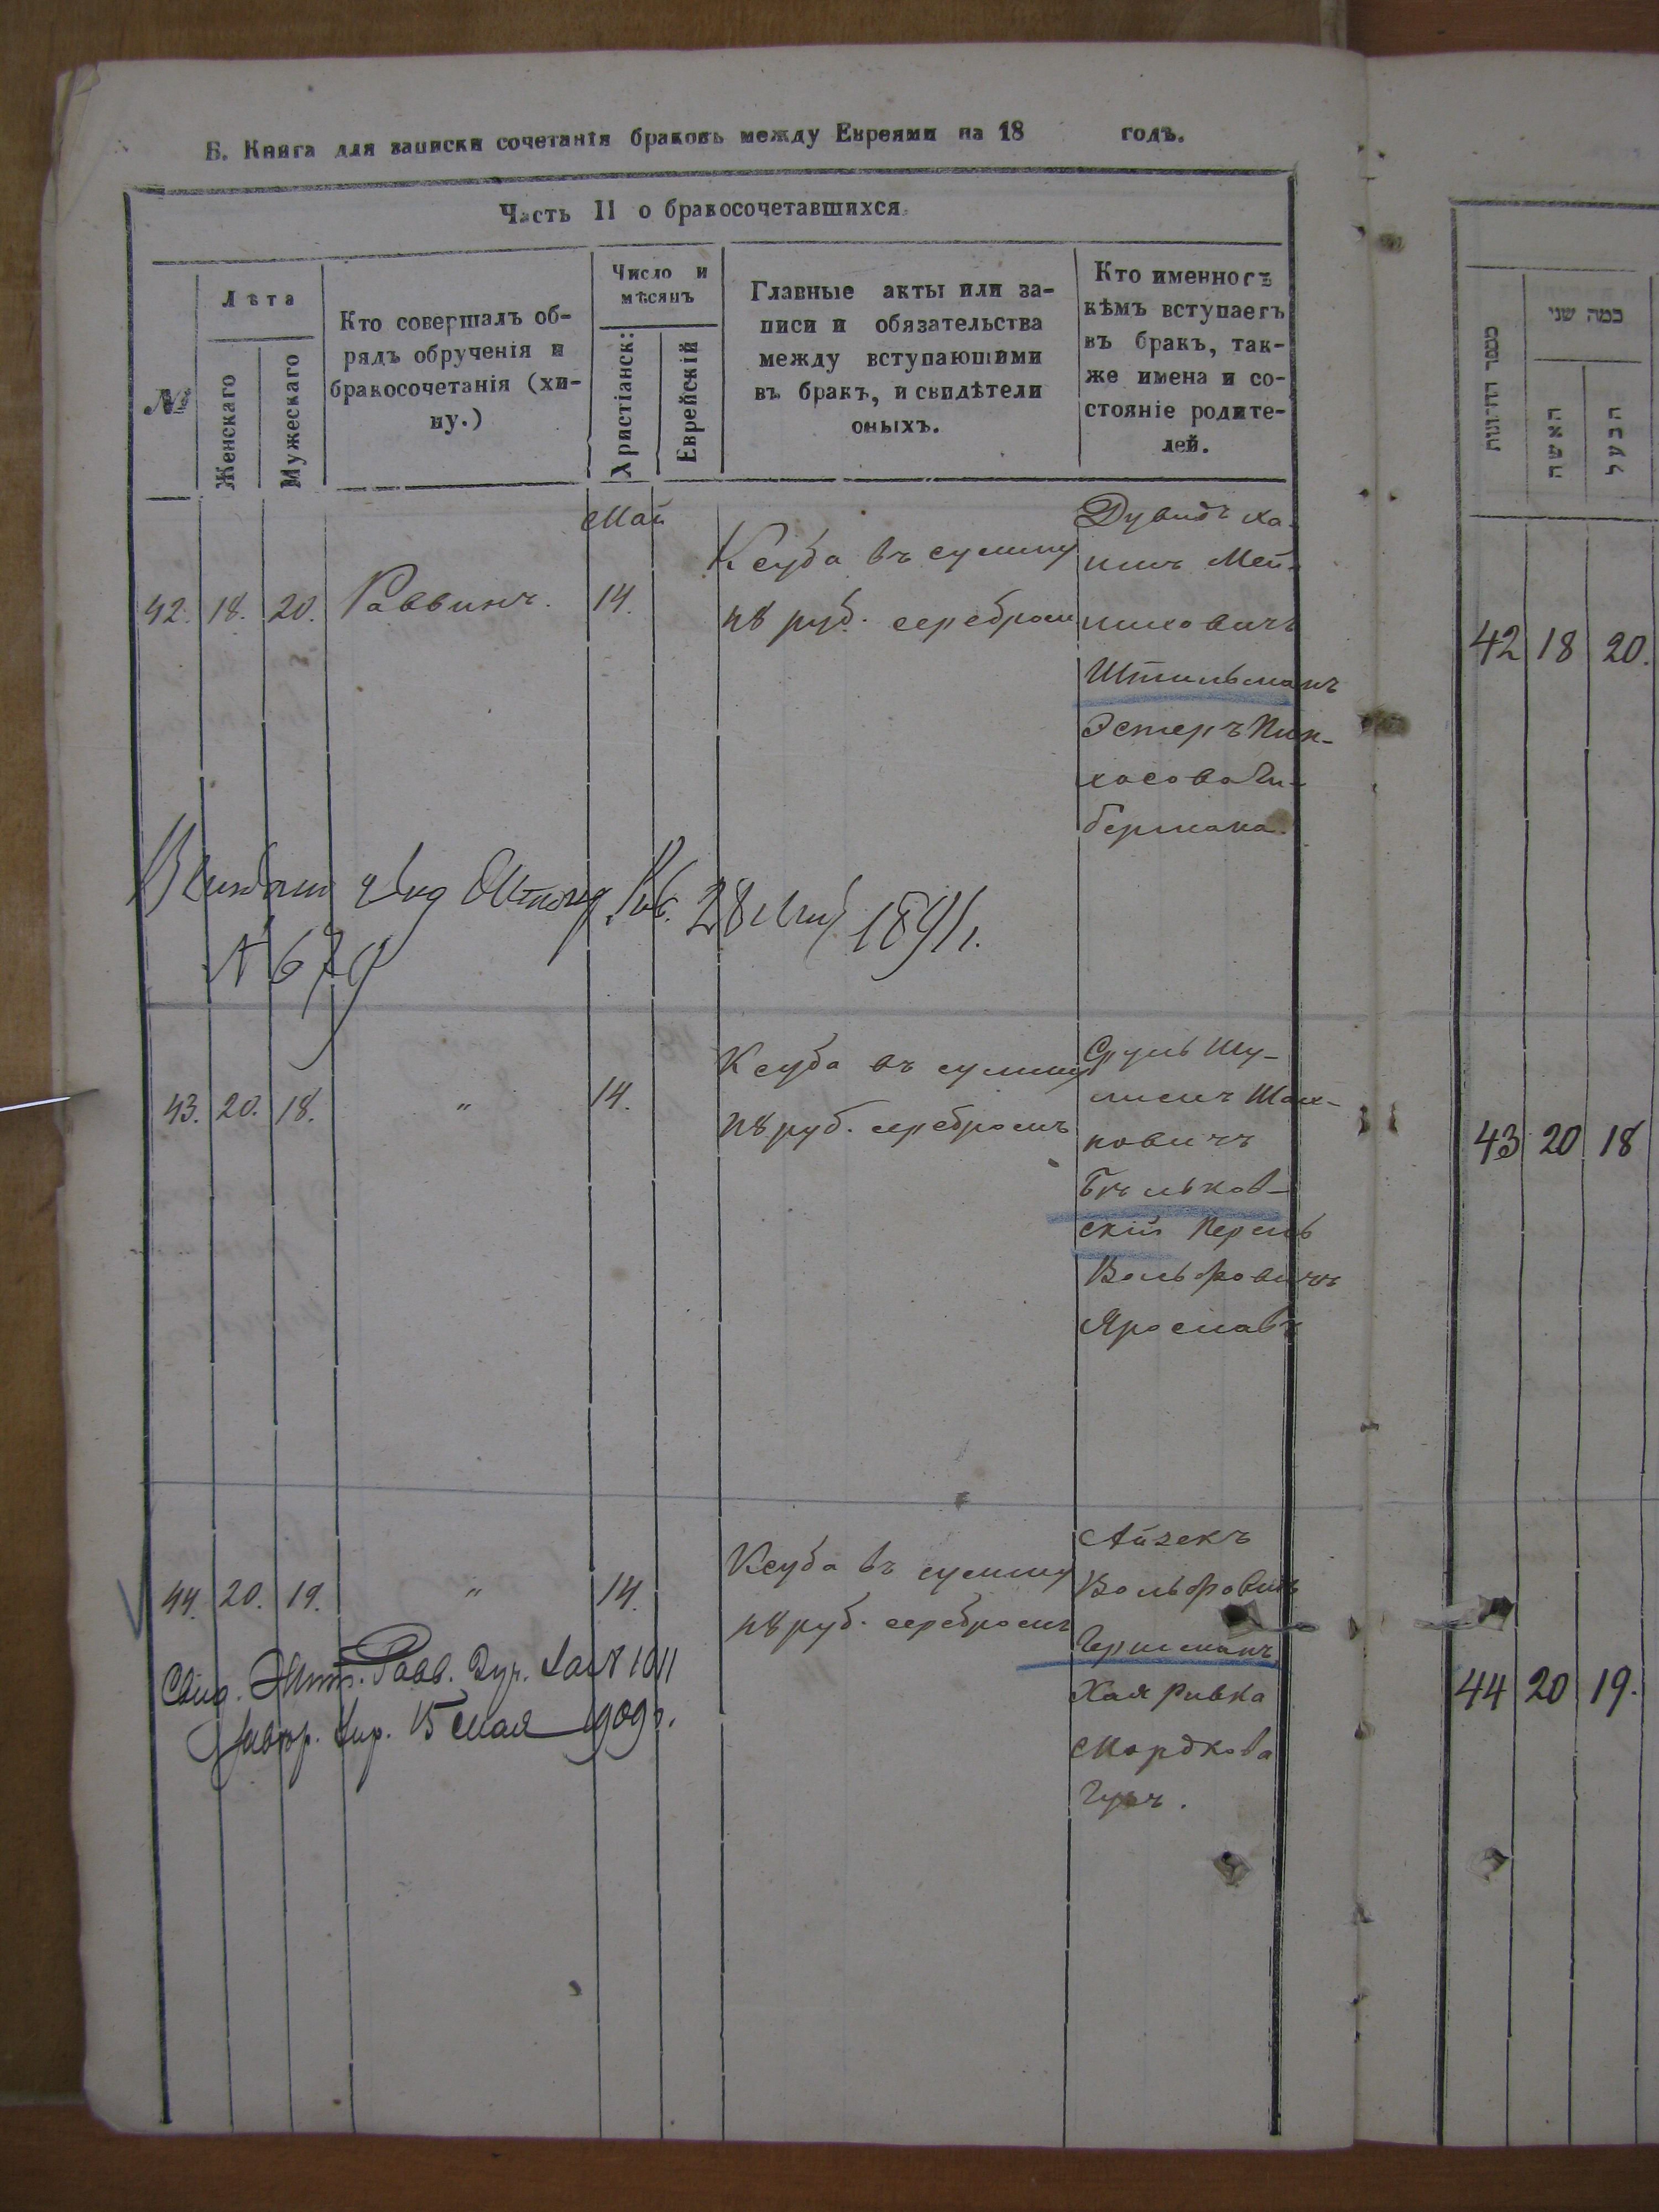 Б. Книга для записки сочетанія браковъ между Евреями на 18 годъ.
Часть II о бракосочетавшихся.
№
Лѣта
Женскаго
Мужескаго
Кто совершалъ об-
рядъ обрученія и
бракосочетанія (хи-
пу.)
Число и
мѣсяцъ
Христіанск:
Еврейскій
Главные акты или за-
писи и обязательства
между вступающими
въ бракъ, и свидѣтели
оныхъ.
Кто именно съ
кѣмъ вступаетъ
въ бракъ, так-
же имена и со-
стояніе родите-
лей.
Май
42. 18. 20. Раввинъ. 14.
Ксуба въ сумму
48 руб. серебром
Дувидъ Ха-
имъ Мей-
Штильманъ
Эстеръ Пин-
хасова Ли-
бермана.
28 1891 г.
43. 20. 18. " 14.
Ксуба въ сумму
48 руб. серебромъ
Сруль Шу-
Бѣльков-
скій Перель
Вольфовичъ
Ярослав
44. 20. 19. " 14.
Ксуба въ сумму
48 руб. серебромъ
Айзекъ
Вольфовичъ
Гершманъ
Хая Ривка
Мордкова
Свид. Равв. 1011
15 мая 1909 г.
מספר הזווגות
כמה שני
האשה
הבעל
42 18 20.
43 20 18
44 20 19.